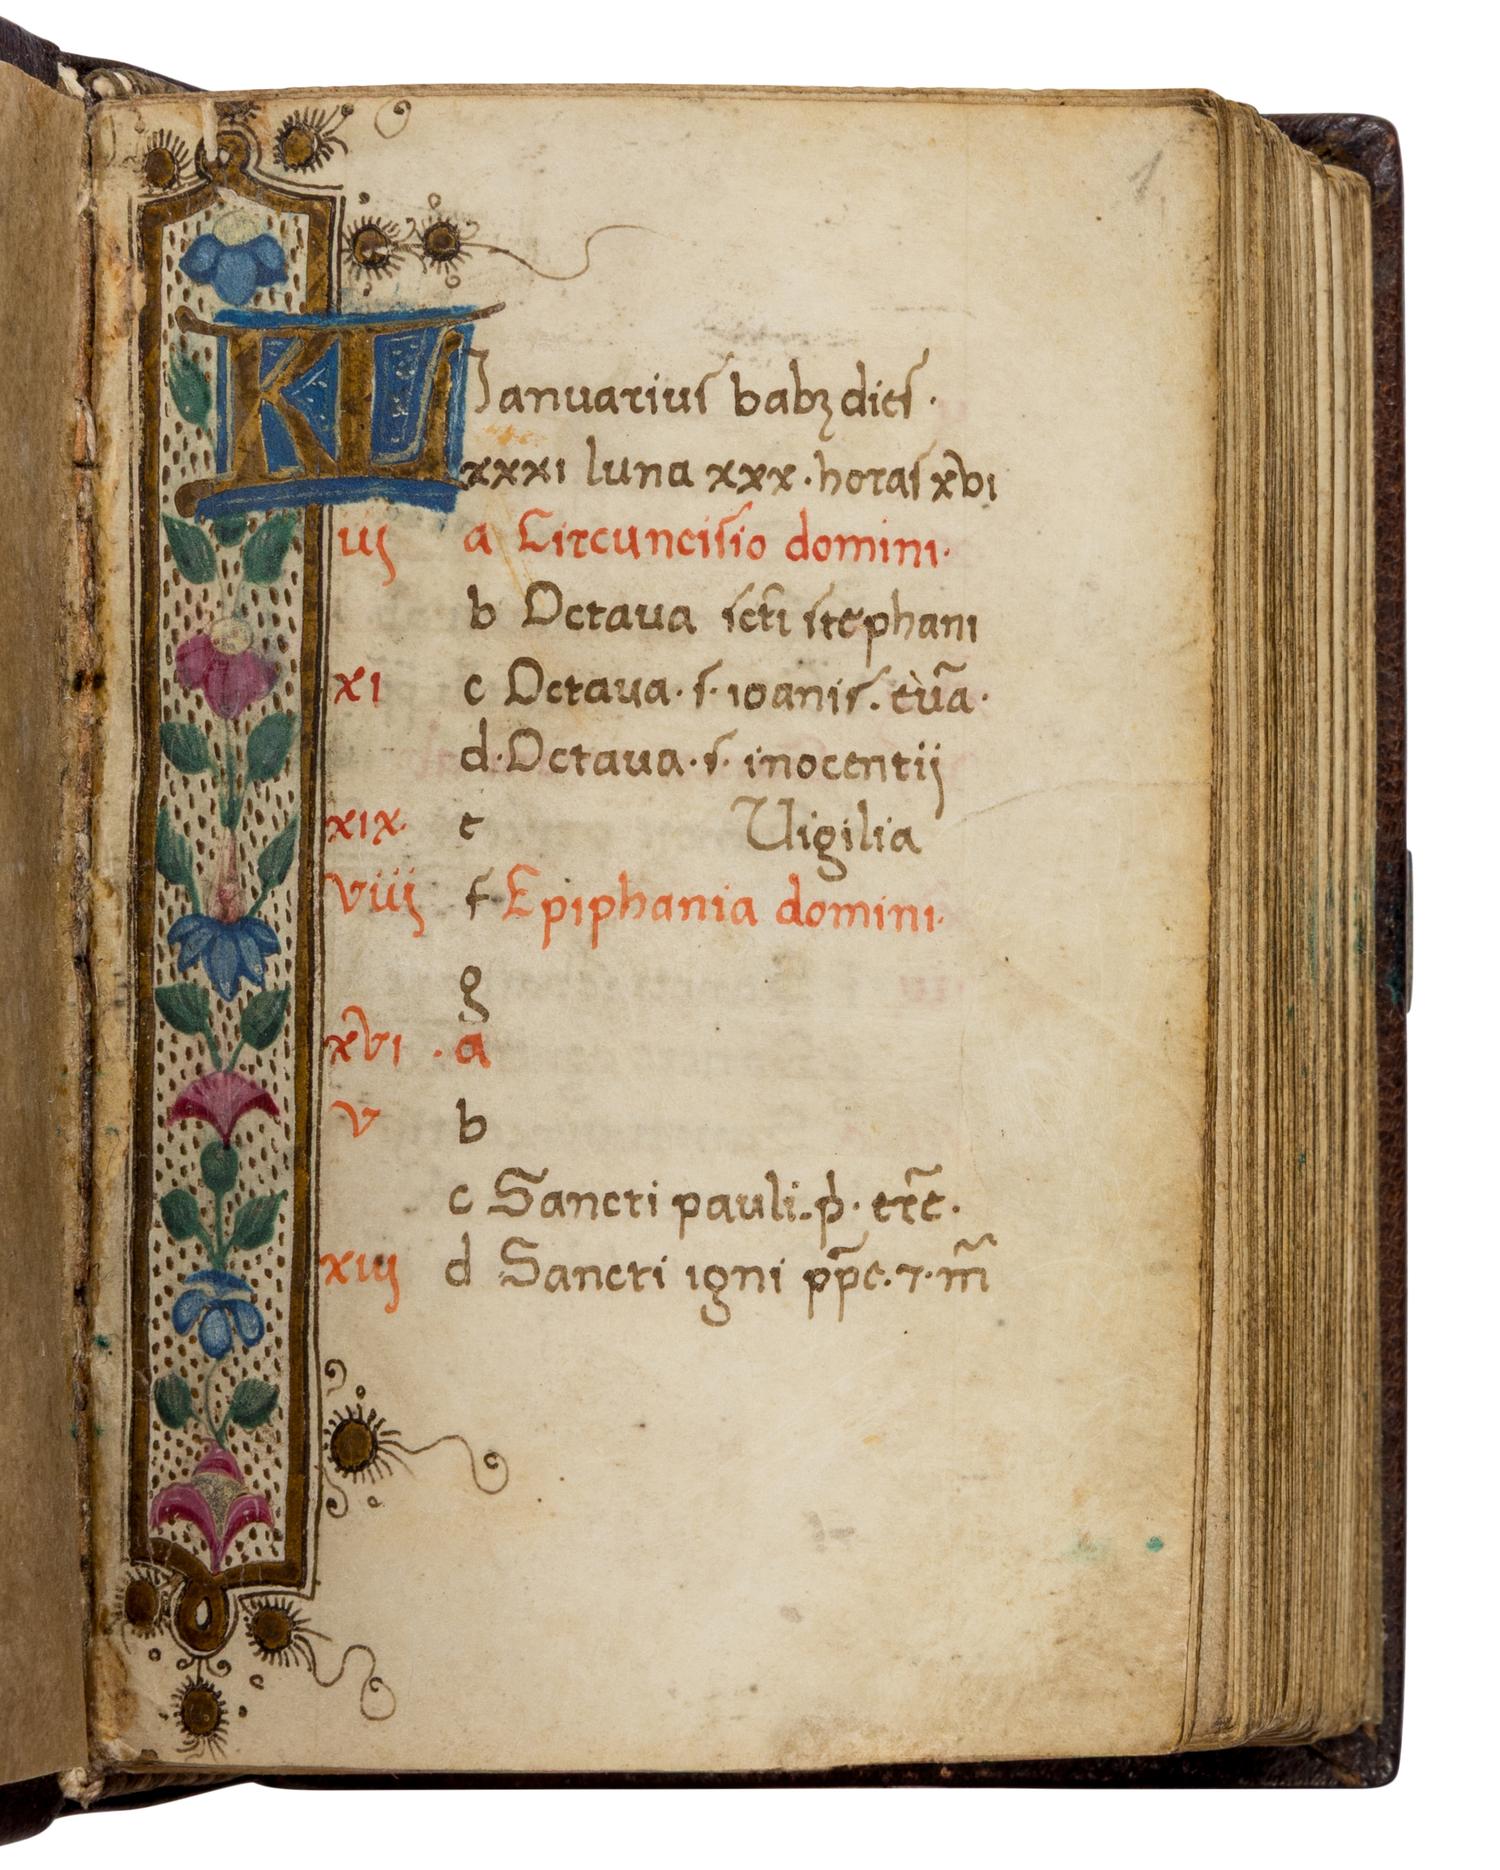 1
KL Januarius babꝫ dies.
xxxi luna xxx. horas xvi
iij a Circuncisio domini.
b Octaua scti stephani
xi c Octaua. s. ioanis. euã.
d. Octaua. s. inocentij
xix. e Uigilia
viiij f Epiphania domini.
g
xvi . a
v b
c Sancti pauli. p̱.
xiij d Sancti igni ⁊. m̃